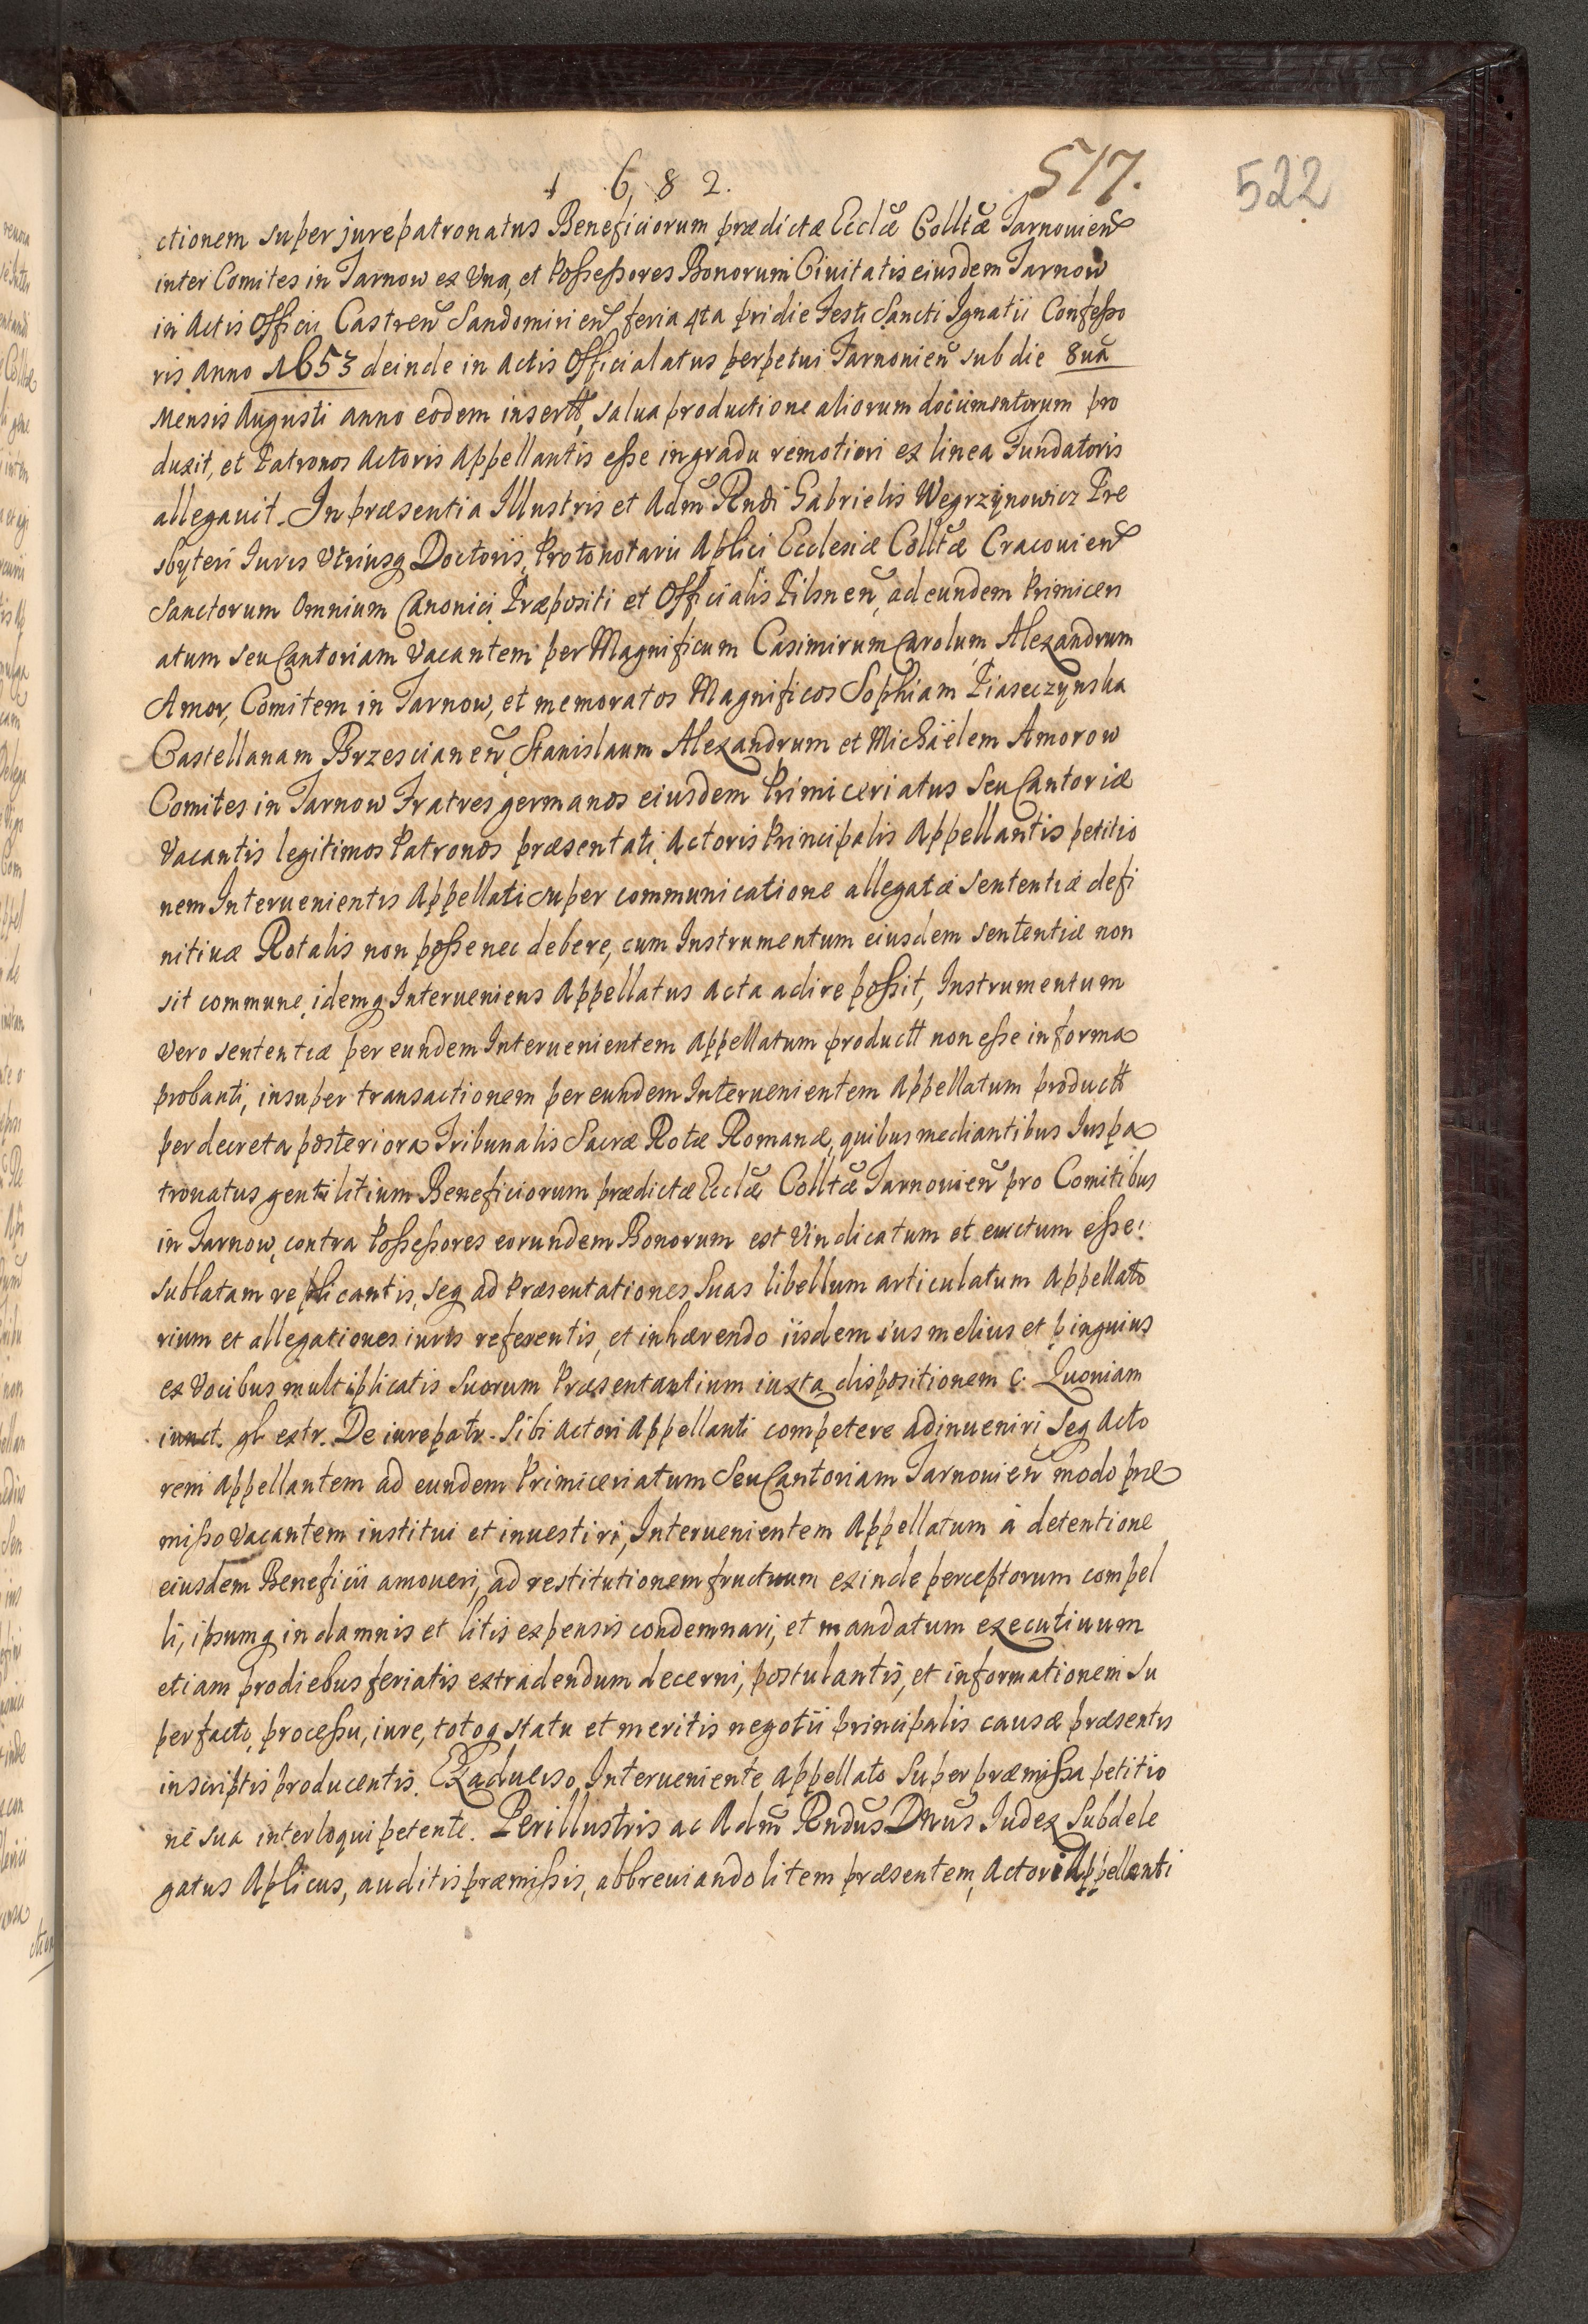 1 6 8 2.
517.
522
ctionem super jurepatronatus Beneficiorum prædictæ Ecclæ Colltæ Tarnovien̄
inter Comites in Tarnow ex Vna, et Possessores Bonorum Ciuitatis eiusdem Tarnow
in Actis Officii Castren̄ Sandomirien̄ feria 4ta pridie Festi Sancti Ignatii Confesso
ris Anno 1653 deinde in Actis Officialatus perpetui Tarnouien̄ sub die 8ua
Mensis Augusti anno eodem insertt, salua productione aliorum documentorum pro
duxit, et Patronos Actoris Appellantis esse in gradu remotiori ex linea Fundatoris
allegauit. In præsentia Illustris et Adm̄ Rndi Gabrielis Wegrzynowicz Pre
sbyteri Iuris Vtriusq Doctoris, Protonotarii Aplici Ecclesiæ Colltæ Cracouien̄
Sanctorum Omnium Canonici, Præpositi et Officialis Pilsnen̄, ad eundem Primiceri
atum seu Cantoriam Vacantem per Magnificum Casimirum Carolum Alexandrum
Amor, Comitem in Tarnow, et memoratos Magnificos Sophiam Piaseczynska
Castellanam Brzescianen̄, Stanislaum Alexandrum et Michaëlem Amorow
Comites in Tarnow Fratres germanos eiusdem Primiceriatus Seu Cantoriæ
Vacantis legitimos Patronos præsentati, Actoris Principalis Appellantis petitio
nem Interuenientis Appellati super communicatione allegatæ sententiæ defi
nitiuæ Rotalis non posse nec debere, cum Instrumentum eiusdem sententiæ non
sit commune, idemq Interueniens Appellatus Acta adire possit, Instrumentum
Vero sententiæ per eundem Interuenientem Appellatum productt non esse in forma
probanti, insuper transactionem per eundem Interuenientem Appellatum productt
per decreta posteriora Tribunalis Sacræ Rotæ Romanæ, quibus mediantibus Iuspa
tronatus gentilitium Beneficiorum prædictæ Ecclæ Colltæ Tarnouien̄ pro Comitibus
in Tarnow, contra Possessores eorundem Bonorum est Vindicatum et euictum esse!
sublatam replicantis, seq ad Præsentationes Suas libellum articulatum Appellato
rium et allegationes iuris referentis, et inhærendo iisdem ius melius et pinguius
ex Vocibus multiplicatis Suorum Præsentantium iuxta dispositionem C. Quoniam
iunct. gl. extr. De iurepatr. Sibi Actori Appellanti competere adinueniri, Seq Acto
rem Appellantem ad eundem Primiceriatum Seu Cantoriam Tarnouien̄ modo præ
misso Vacantem institui et inuestiri, Interuenientem Appellatum à detentione
eiusdem Beneficii amoueri, ad restitutionem fructuum exinde perceptorum compel
li, ipsumq in damnis et litis expensis condemnari, et mandatum executiuum
etiam prodiebus feriatis extradendum decerni, postulantis, et informationem su
per facto, processu, iure, totoq statu et meritis negotii principalis causæ præsentis
inscriptis producentis. Ex aduerso, Interueniente Appellato Super præmissa petitio
ne sua interloqui petente. Perillustris ac Adm̄ Rndus Dnus Iudex Subdele
gatus Aplicus, auditis præmissis, abbreuiando litem præsentem, Actori Appellanti